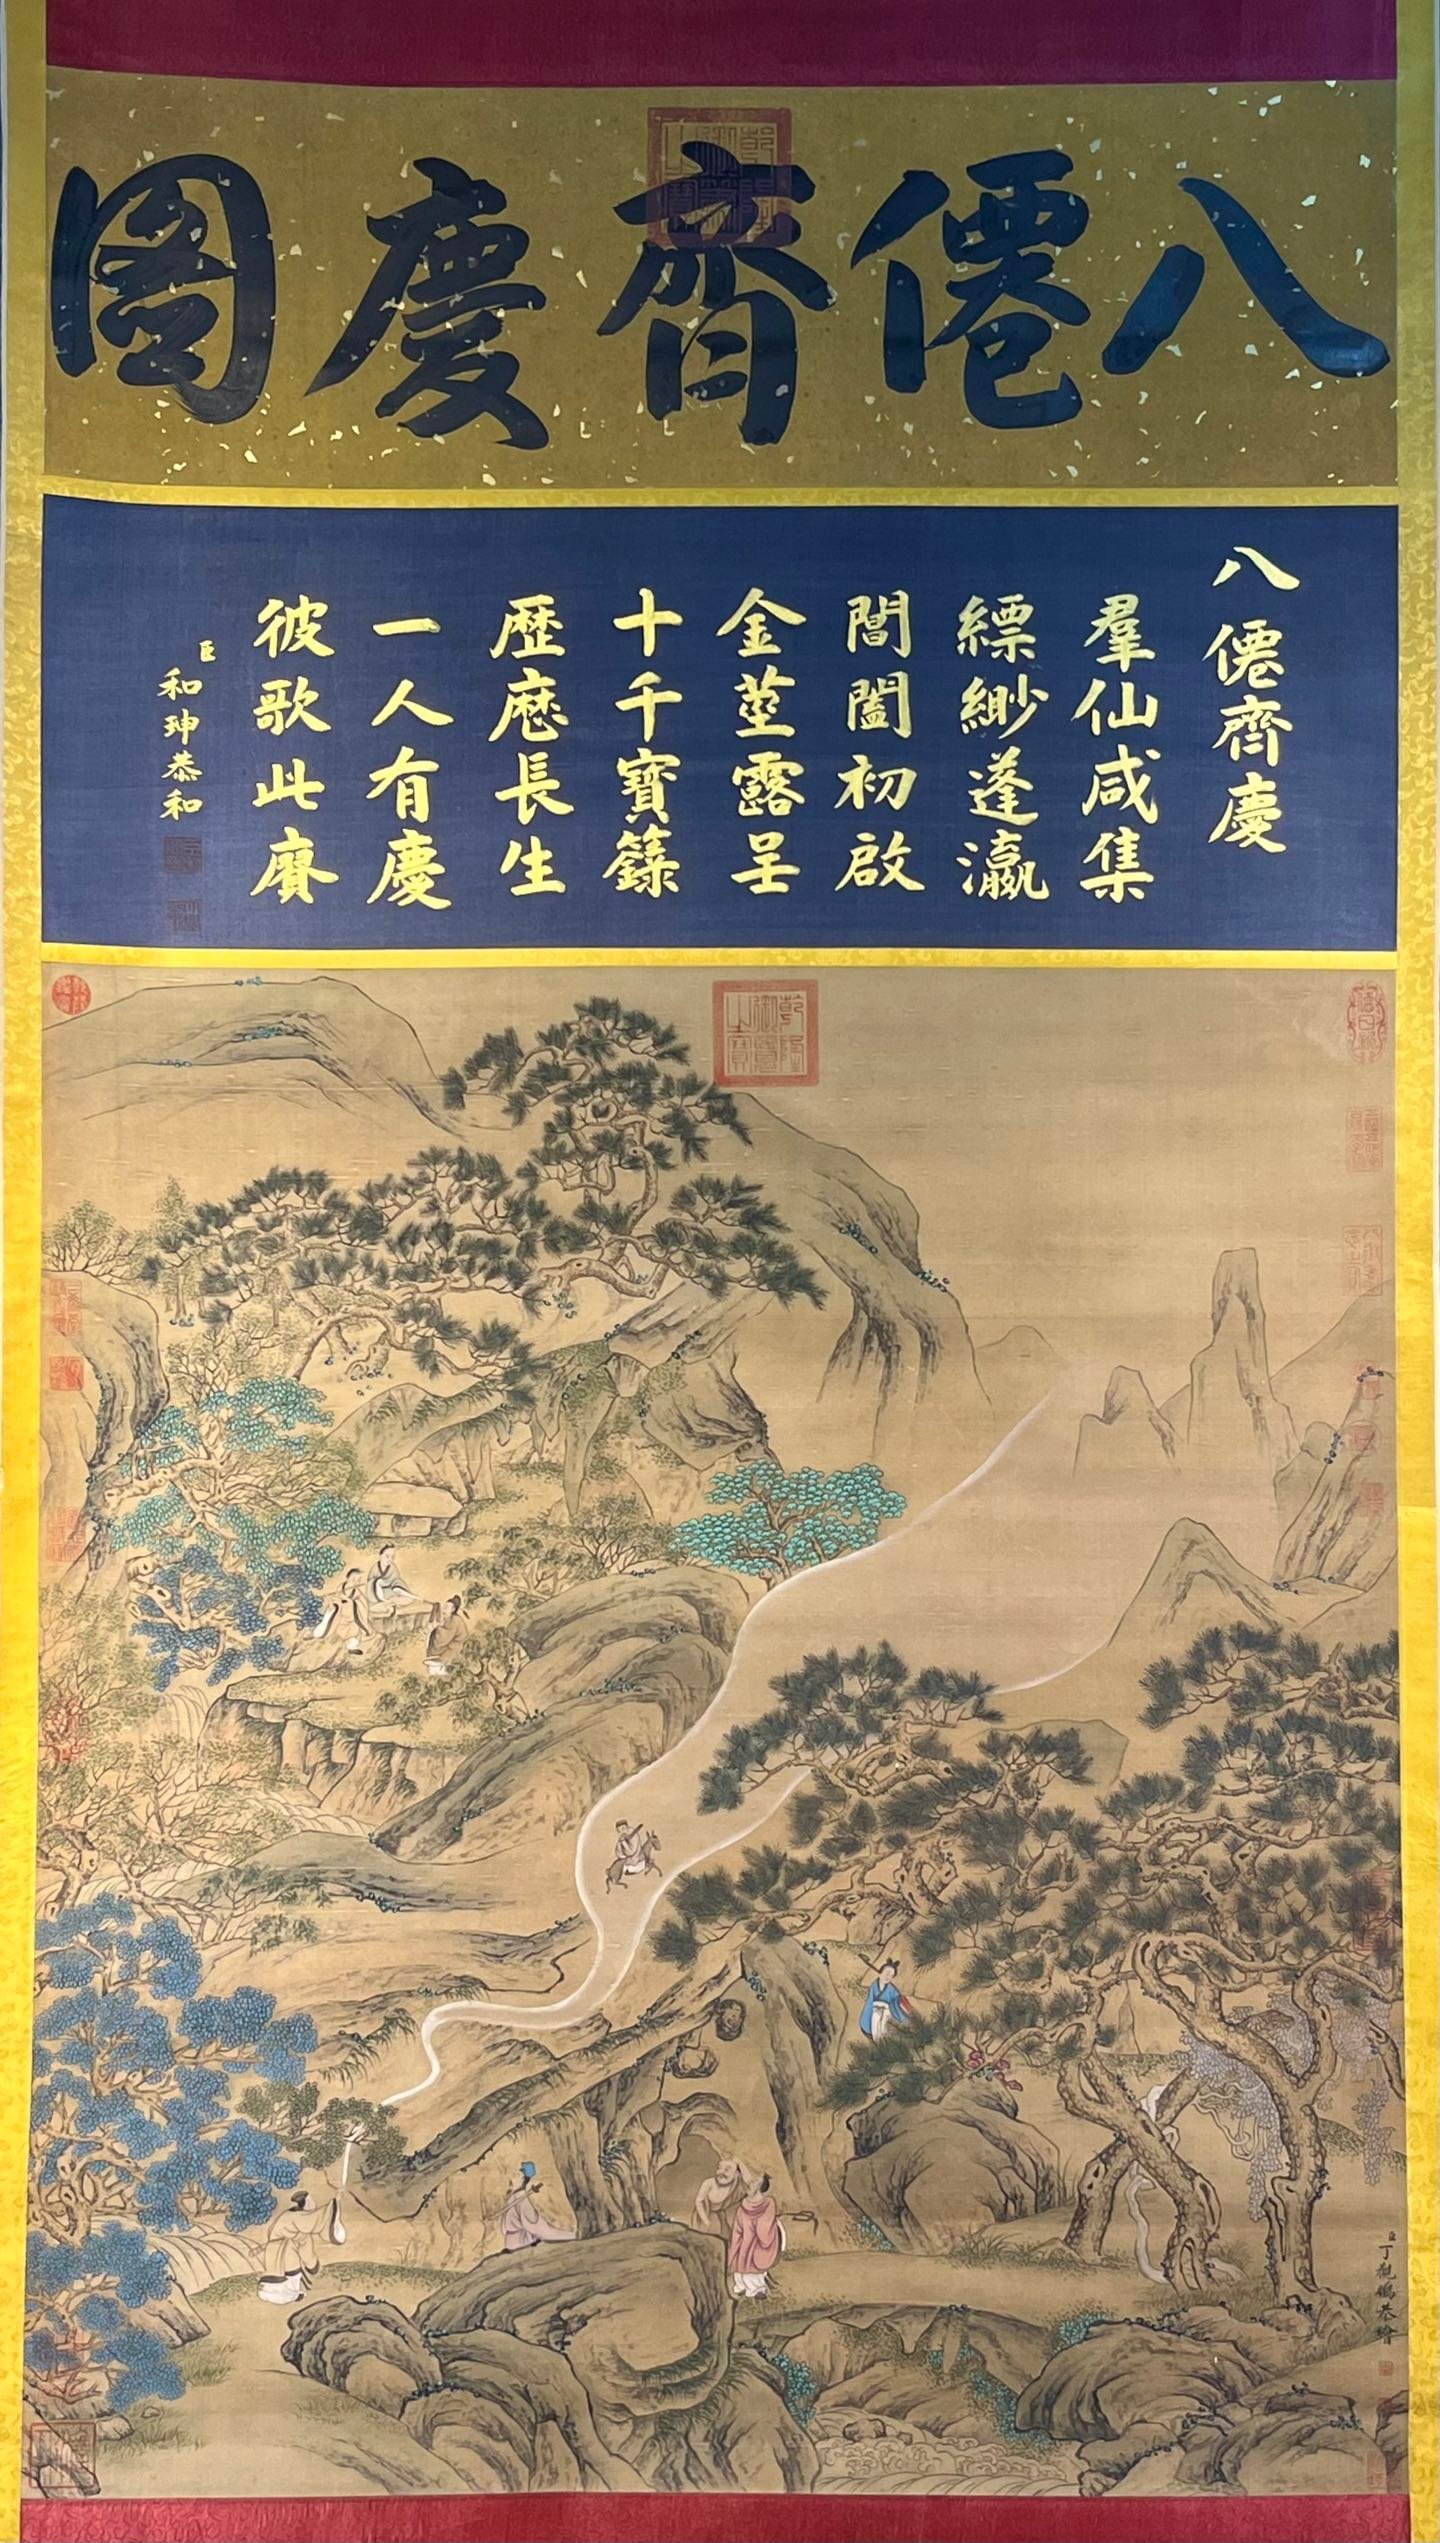 八僊齊慶圖
乾隆御筆之寶
八僊齊慶
羣仙咸集
縹緲蓬瀛
閶闔初啟
金莖露呈
十千寶籙
歷歷長生
一人有慶
彼歌此賡
臣和珅恭和
乾隆御覽之寶
臣丁觀鵬恭繪